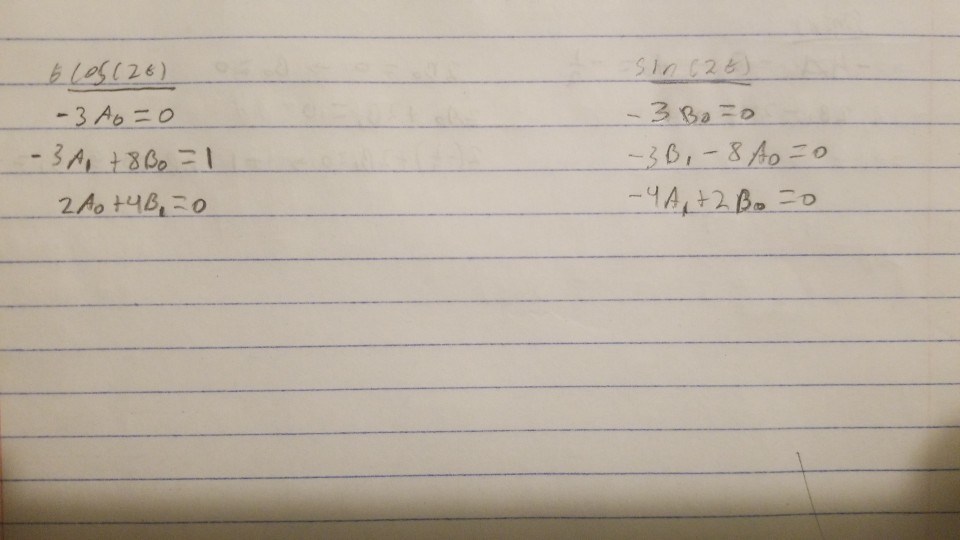 t cos(2t)
-3A₀=0
-3A₁+8B₀=1
2A₀+4B₁=0
sin(2t)
-3B₀=0
-3B₁-8A₀=0
-4A₁+2B₀=0